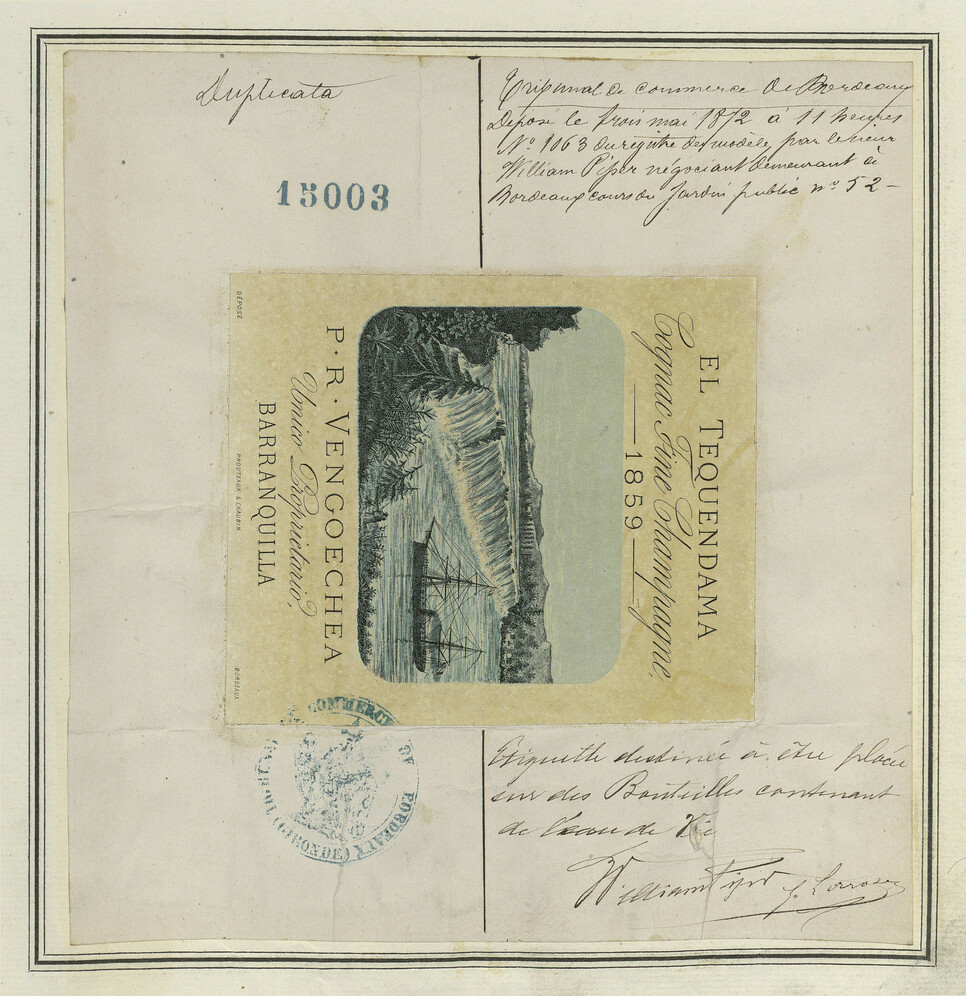 Duplicata
15003
Tribunal de commerce de Bordeaux
Déposé le trois mai 1872 à 11 heures
Nº 1063 du registre des modèle par le sieur
William Piper négociant demeurant à
Bordeaux cours du Jardin public nº 52 -
EL TEQUENDAMA
Cognac Fine Champagne,
1859
P. R. VENGOECHEA
Unico Proprietario,
BARRANQUILLA
DÉPOSÉ
PROUTEAUX & CHAUBIN
BORDEAUX
COMMERCE DE BORDEAUX (GIRONDE)
Etiquette destinée à être placée
sur des Bouteilles contenant
de l'eau de Vie
William Piper